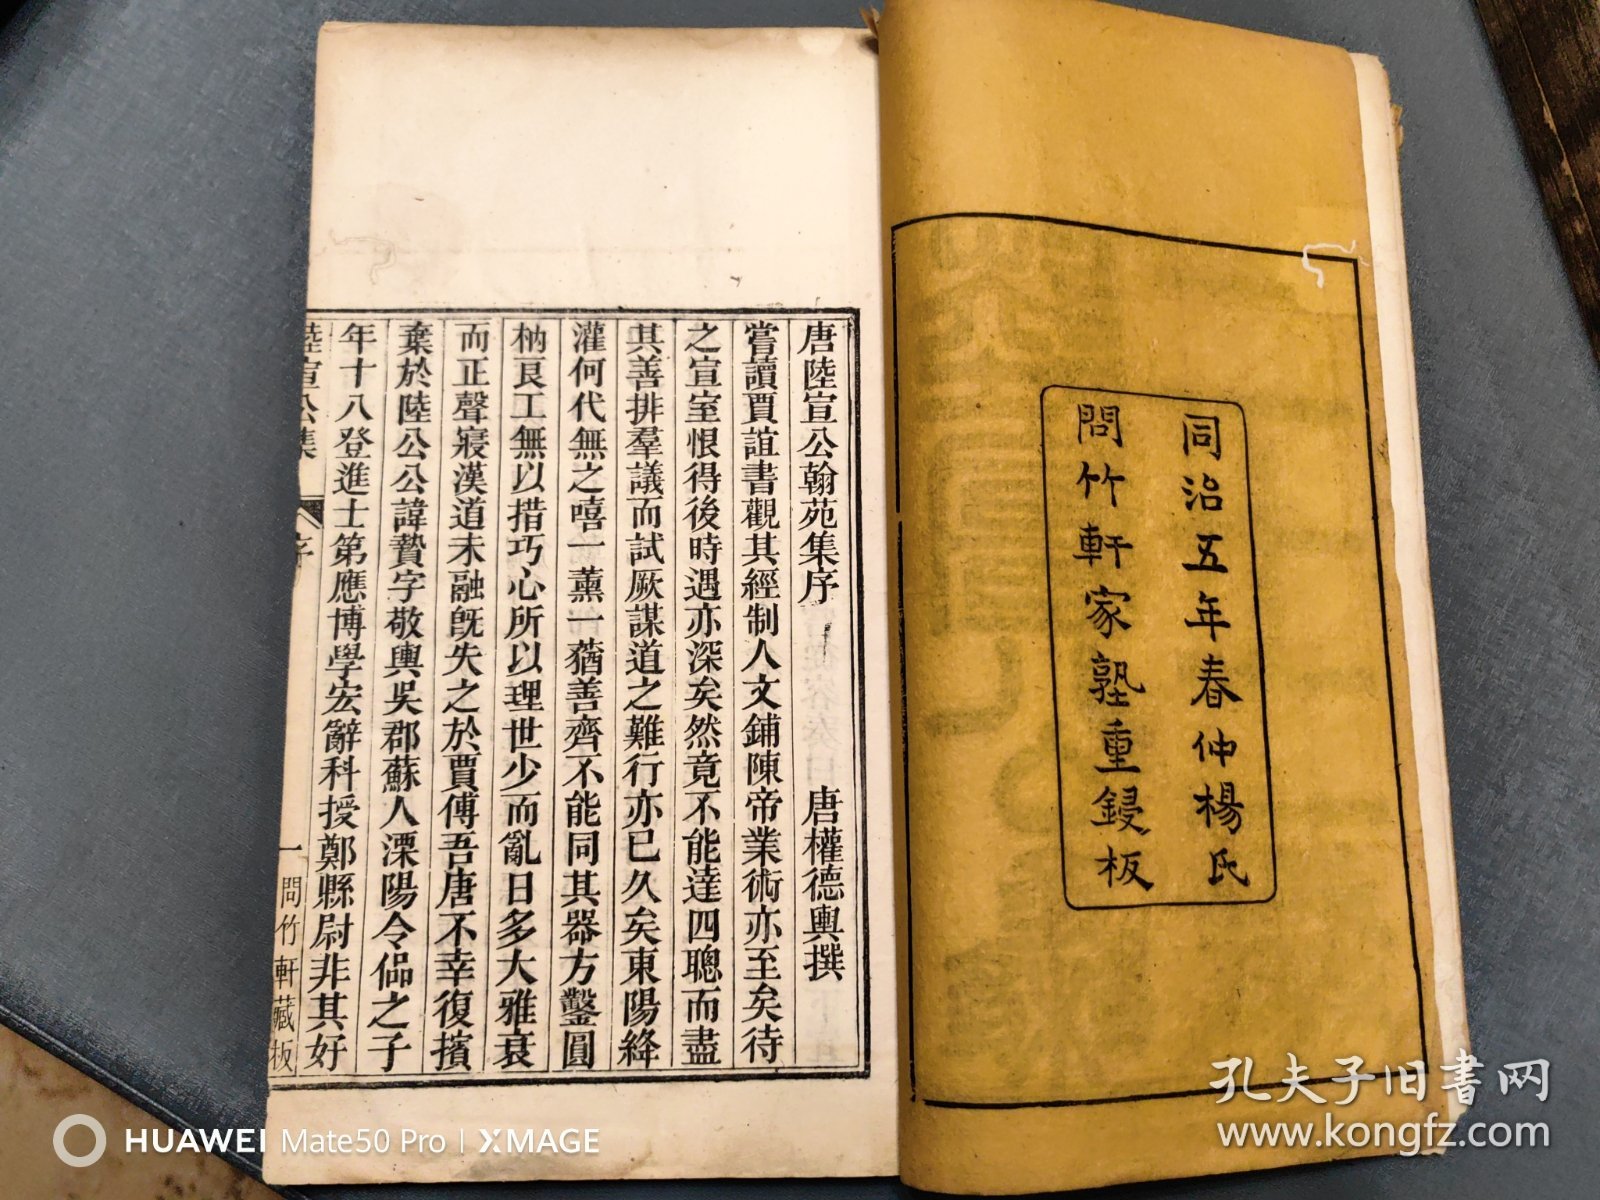 同治五年春仲楊氏
問竹軒家塾重鋟板
唐陸宣公翰苑集序
唐權德輿撰
嘗讀賈誼書觀其經制人文鋪陳帝業術亦至矣待
之宣室恨得後時遇亦深矣然竟不能達四聰而盡
其善排羣議而試厥謀道之難行亦已久矣東陽絳
灌何代無之嘻一薰一蕕善齊不能同其器方鑿圓
枘良工無以措巧心所以理世少而亂日多大雅衰
而正聲寢漢道未融旣失之於賈傅吾唐不幸復擯
棄於陸公公諱贄字敬輿吳郡蘇人溧陽令偘之子
年十八登進士第應博學宏辭科授鄭縣尉非其好
陸宣公集
序
一
問竹軒藏板
孔夫子旧书网
www.kongfz.com
HUAWEI Mate50 Pro | XMAGE